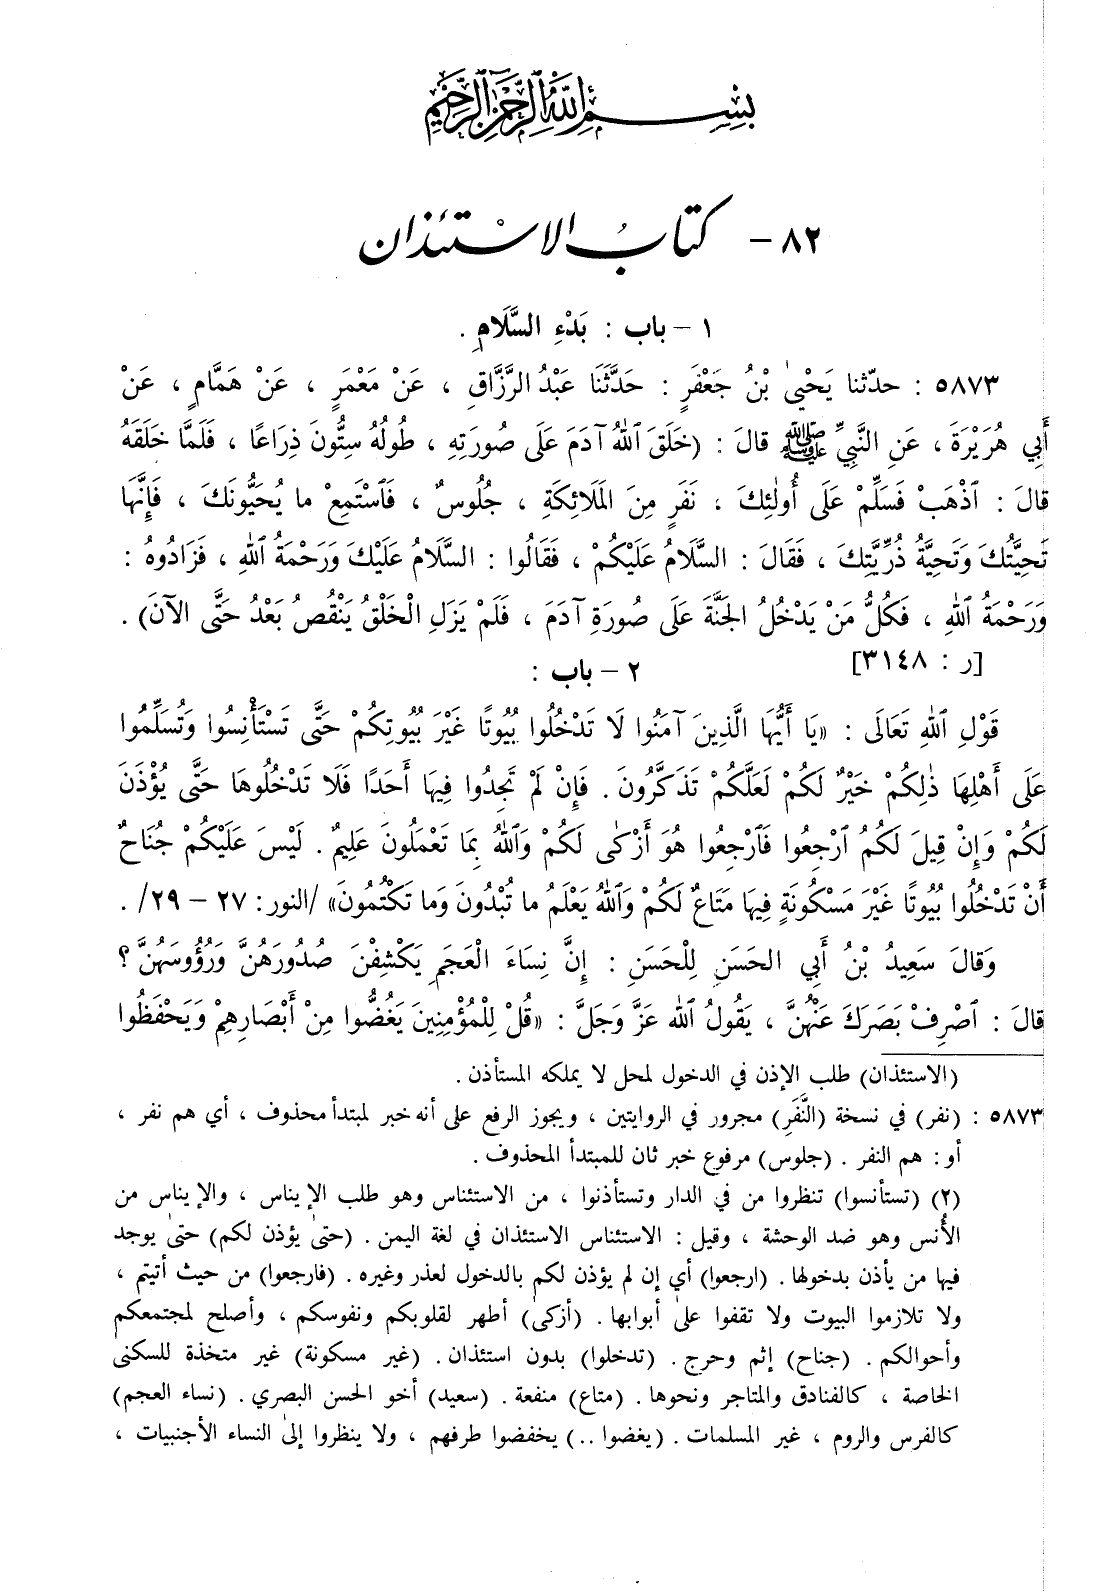 بِسْمِ اللهِ الرَّحْمٰنِ الرَّحِيْمِ
٨٢ - كتابُ الاسْتئذان
١ - باب : بَدْءِ السَّلَامِ .
٥٨٧٣ : حدّثنا يَحْيىٰ بْنُ جَعْفَرٍ : حَدَّثَنَا عَبْدُ الرَّزَّاقِ ، عَنْ مَعْمَرٍ ، عَنْ هَمَّامٍ ، عَنْ
أَبِي هُرَيْرَةَ ، عَنِ النَّبِيِّ ﷺ قالَ : (خَلَقَ ٱللهُ آدَمَ عَلَى صُورَتِهِ ، طُولُهُ سِتُّونَ ذِرَاعًا ، فَلَمَّا خَلَقَهُ
قالَ : ٱذْهَبْ فَسَلِّمْ عَلَى أُولٰئِكَ ، نَفَرٍ مِنَ المَلَائِكَةِ ، جُلُوسٌ ، فَٱسْتَمِعْ ما يُحَيُّونَكَ ، فَإِنَّهَا
تَحِيَّتُكَ وَتَحِيَّةُ ذُرِّيَّتِكَ ، فَقَالَ : السَّلَامُ عَلَيْكُمْ ، فَقَالُوا : السَّلَامُ عَلَيْكَ وَرَحْمَةُ ٱللهِ ، فَزَادُوهُ :
وَرَحْمَةُ ٱللهِ ، فَكُلُّ مَنْ يَدْخُلُ الجَنَّةَ عَلَى صُورَةِ آدَمَ ، فَلَمْ يَزَلِ الْخَلْقُ يَنْقُصُ بَعْدُ حَتَّى الآنَ) .
[ر : ٣١٤٨]
٢ - باب :
قَوْلِ ٱللهِ تَعَالَى : «يَا أَيُّهَا الَّذِينَ آمَنُوا لَا تَدْخُلُوا بُيُوتًا غَيْرَ بُيُوتِكُمْ حَتَّى تَسْتَأْنِسُوا وَتُسَلِّمُوا
عَلَى أَهْلِهَا ذٰلِكُمْ خَيْرٌ لَكُمْ لَعَلَّكُمْ تَذَكَّرُونَ . فَإِنْ لَمْ تَجِدُوا فِيهَا أَحَدًا فَلَا تَدْخُلُوهَا حَتَّى يُؤْذَنَ
لَكُمْ وَإِنْ قِيلَ لَكُمُ ٱرْجِعُوا فَٱرْجِعُوا هُوَ أَزْكٰى لَكُمْ وَٱللهُ بِمَا تَعْمَلُونَ عَلِيمٌ . لَيْسَ عَلَيْكُمْ جُنَاحٌ
أَنْ تَدْخُلُوا بُيُوتًا غَيْرَ مَسْكُونَةٍ فِيهَا مَتَاعٌ لَكُمْ وَٱللهُ يَعْلَمُ ما تُبْدُونَ وَما تَكْتُمُونَ» /النور: ٢٧ - ٢٩/ .
وَقالَ سَعِيدُ بْنُ أَبِي الحَسَنِ لِلْحَسَنِ : إِنَّ نِسَاءَ الْعَجَمِ يَكْشِفْنَ صُدُورَهُنَّ وَرُؤُوسَهُنَّ ؟
قالَ : ٱصْرِفْ بَصَرَكَ عَنْهُنَّ ، يَقُولُ ٱلله عَزَّ وَجَلَّ : «قُلْ لِلْمُؤْمِنِينَ يَغُضُّوا مِنْ أَبْصَارِهِمْ وَيَحْفَظُوا
(الاستئذان) طلب الإذن في الدخول لمحل لا يملكه المستأذن .
٥٨٧٣ : (نفر) في نسخة (النَّفَرِ) مجرور في الروايتين ، ويجوز الرفع على أنه خبر لمبتدأ محذوف ، أي هم نفر ،
أو : هم النفر . (جلوس) مرفوع خبر ثان للمبتدأ المحذوف .
(٢) (تستأنسوا) تنظروا من في الدار وتستأذنوا ، من الاستئناس وهو طلب الإيناس ، والإيناس من
الأُنس وهو ضد الوحشة ، وقيل : الاستئناس الاستئذان في لغة اليمن . (حتىٰ يؤذن لكم) حتىٰ يوجد
فيها من يأذن بدخولها . (ارجعوا) أي إن لم يؤذن لكم بالدخول لعذر وغيره . (فارجعوا) من حيث أتيتم ،
ولا تلازموا البيوت ولا تقفوا علىٰ أبوابها . (أزكىٰ) أطهر لقلوبكم ونفوسكم ، وأصلح لمجتمعكم
وأحوالكم . (جناح) إثم وحرج . (تدخلوا) بدون استئذان . (غير مسكونة) غير متخذة للسكنى
الخاصة ، كالفنادق والمتاجر ونحوها . (متاع) منفعة . (سعيد) أخو الحسن البصري . (نساء العجم)
كالفرس والروم ، غير المسلمات . (يغضوا ..) يخفضوا طرفهم ، ولا ينظروا إلىٰ النساء الأجنبيات ،